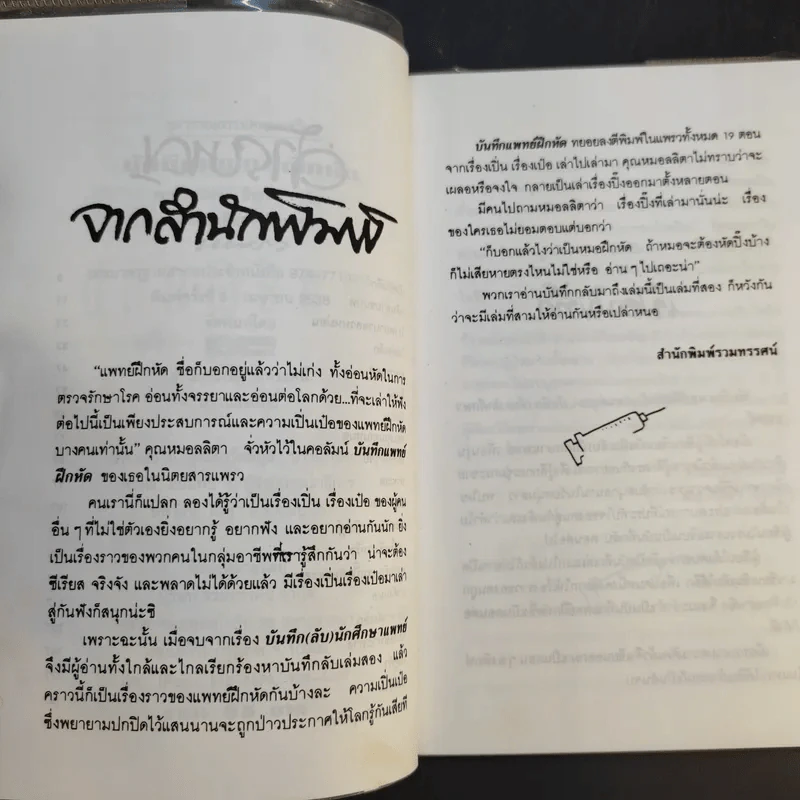 จากสำนักพิมพ์
"แพทย์ฝึกหัด ชื่อก็บอกอยู่แล้วว่าไม่เก่ง ทั้งอ่อนหัดในการ
ตรวจรักษาโรค อ่อนทั้งจรรยาและอ่อนต่อโลกด้วย...ที่จะเล่าให้ฟัง
ต่อไปนี้เป็นเพียงประสบการณ์และความเป็นเป๋อของแพทย์ฝึกหัด
บางคนเท่านั้น" คุณหมอลลิตา จั่วหัวไว้ในคอลัมน์ บันทึกแพทย์
ฝึกหัด ของเธอในนิตยสารแพรว
คนเรานี่ก็แปลก ลองได้รู้ว่าเป็นเรื่องเปิ่น เรื่องเป๋อ ของผู้คน
อื่น ๆ ที่ไม่ใช่ตัวเองยิ่งอยากรู้ อยากฟัง และอยากอ่านกันนัก ยิ่ง
เป็นเรื่องราวของพวกคนในกลุ่มอาชีพที่เรารู้สึกกันว่า น่าจะต้อง
ซีเรียส จริงจัง และพลาดไม่ได้ด้วยแล้ว มีเรื่องเปิ่นเรื่องเป๋อมาเล่า
สู่กันฟังก็สนุกน่ะซิ
เพราะฉะนั้น เมื่อจบจากเรื่อง บันทึก(ลับ)นักศึกษาแพทย์
จึงมีผู้อ่านทั้งใกล้และไกลเรียกร้องหาบันทึกลับเล่มสอง แล้ว
คราวนี้ก็เป็นเรื่องราวของแพทย์ฝึกหัดกันบ้างละ ความเปิ่นเป๋อ
ซึ่งพยายามปกปิดไว้แสนนานจะถูกป่าวประกาศให้โลกรู้กันเสียที
บันทึกแพทย์ฝึกหัด ทยอยลงตีพิมพ์ในแพรวทั้งหมด 19 ตอน
จากเรื่องเปิ่น เรื่องเป๋อ เล่าไปเล่ามา คุณหมอลลิตาไม่ทราบว่าจะ
เผลอหรือจงใจ กลายเป็นเล่าเรื่องปิ๊งออกมาตั้งหลายตอน
มีคนไปถามหมอลลิตาว่า เรื่องปิ๊งที่เล่ามานั่นน่ะ เรื่อง
ของใครเธอไม่ยอมตอบแต่บอกว่า
"ก็บอกแล้วไงว่าเป็นหมอฝึกหัด ถ้าหมอจะต้องหัดปิ๊งบ้าง
ก็ไม่เสียหายตรงไหนไม่ใช่หรือ อ่าน ๆ ไปเถอะน่า"
พวกเราอ่านบันทึกกลับมาถึงเล่มนี้เป็นเล่มที่สอง ก็หวังกัน
ว่าจะมีเล่มที่สามให้อ่านกันหรือเปล่าหนอ
สำนักพิมพ์รวมทรรศน์